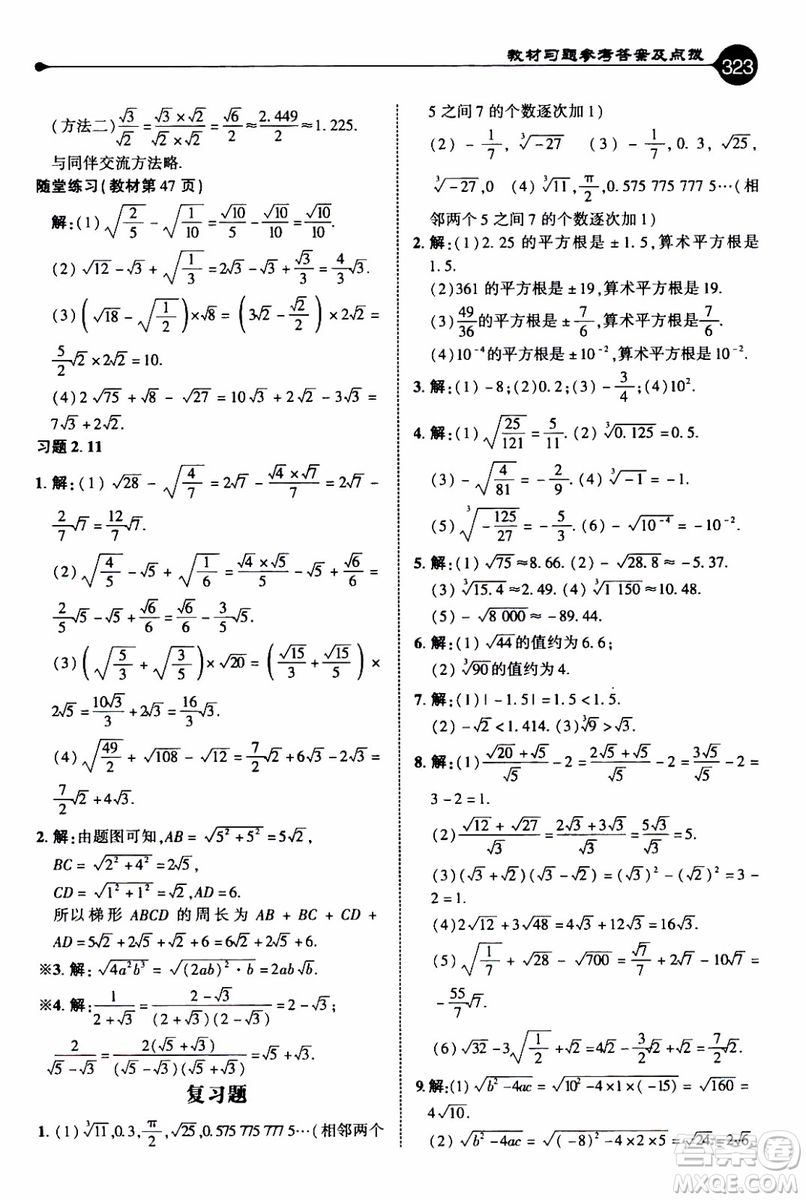 教材习题参考答案及点拨 323
(方法二)√3/√2=(√3×√2)/(√2×√2)=√6/2≈2.449/2≈1.225.
与同伴交流方法略.
随堂练习(教材第47页)
解:(1)√(2/5)-√(1/10)=√10/5-√10/10=√10/10.
(2)√12-√(1/3)=2√3-√3/3=5√3/3.
(3)(√18-√(1/2))×√8=(3√2-√2/2)×√8=
5/2√2×2√2=10.
(4)2√75+√8-√27=10√3+2√2-3√3=
7√3+2√2.
习题2.11
1.解:(1)√28-√(4/7)=2√7-(√4×√7)/7=2√7-
2/7√7=12/7√7.
(2)√(4/5)-√5+√(1/6)=(√4×√5)/5-√5+√6/6=
2/5√5-√5+√6/6=√6/6-3/5√5.
(3)(√(5/3)+√(3/5))×√20=(√15/3+√15/5)×
2√5=10√3/3+2√3=16/3√3.
(4)√(49/2)+√108-√12=7/2√2+6√3-2√3=
7/2√2+4√3.
2.解:由题图可知,AB=√(5²+5²)=5√2,
BC=√(2²+4²)=2√5,
CD=√(1²+1²)=√2,AD=6.
所以梯形ABCD的周长为AB+BC+CD+
AD=5√2+2√5+√2+6=6√2+2√5+6.
※3.解:√(4a²b³)=√((2ab)²·b)=2ab√b.
※4.解:1/(2+√3)=(2-√3)/((2+√3)(2-√3))=2-√3;
2/(√5-√3)=2(√5+√3)/((√5-√3)(√5+√3))=√5+√3.
复习题
1.(1)∛11,0.3,π/2,√25,0.575 775 777 5…(相邻两个
5之间7的个数逐次加1)
(2)-1/7,∛-27 (3)-1/7,0.3,√25,
∛-27,0 (4)∛11,π/2,0.575 775 777 5…(相
邻两个5之间7的个数逐次加1)
2.解:(1)2.25的平方根是±1.5,算术平方根是
1.5.
(2)361的平方根是±19,算术平方根是19.
(3)49/36的平方根是±7/6,算术平方根是7/6.
(4)10⁻⁴的平方根是±10⁻²,算术平方根是10⁻².
3.解:(1)-8;(2)0.2;(3)-3/4;(4)10².
4.解:(1)√(25/121)=5/11.(2)∛0.125=0.5.
(3)-√(4/81)=-2/9.(4)∛(-6)³=-6.
(5)∛(-125/27)=-5/3.(6)-√(10⁻⁴)=-10⁻².
5.解:(1)√75≈8.66.(2)-√28.8≈-5.37.
(3)∛15.4≈2.49.(4)∛1 150≈10.48.
(5)-√8 000≈-89.44.
6.解:(1)√44的值约为6.6;
(2)∛90的值约为4.
7.解:(1)|-1.5|=1.5<1.5̇.
(2)-√2<1.414.(3)∛9>√3.
8.解:(1)(√20+√5)/√5-2=(2√5+√5)/√5-2=3√5/√5-2=
3-2=1.
(2)(√12+√27)/√3=(2√3+3√3)/√3=5√3/√3=5.
(3)(√3+√2)(√3-√2)=(√3)²-(√2)²=3-
2=1.
(4)2√12+√48=4√3+4√3=8√3.
(5)√(1/7)+√28-√700=√7/7+2√7-10√7=
-55/7√7.
(6)√32-3√(1/2)+√2=4√2-3/2√2+√2=7/2√2.
9.解:(1)√(b²-4ac)=√(10²-4×1×(-15))=√160=
4√10.
(2)√(b²-4ac)=√((-8)²-4×2×5)=√24=2√6.
答案圈
MXQE.COM